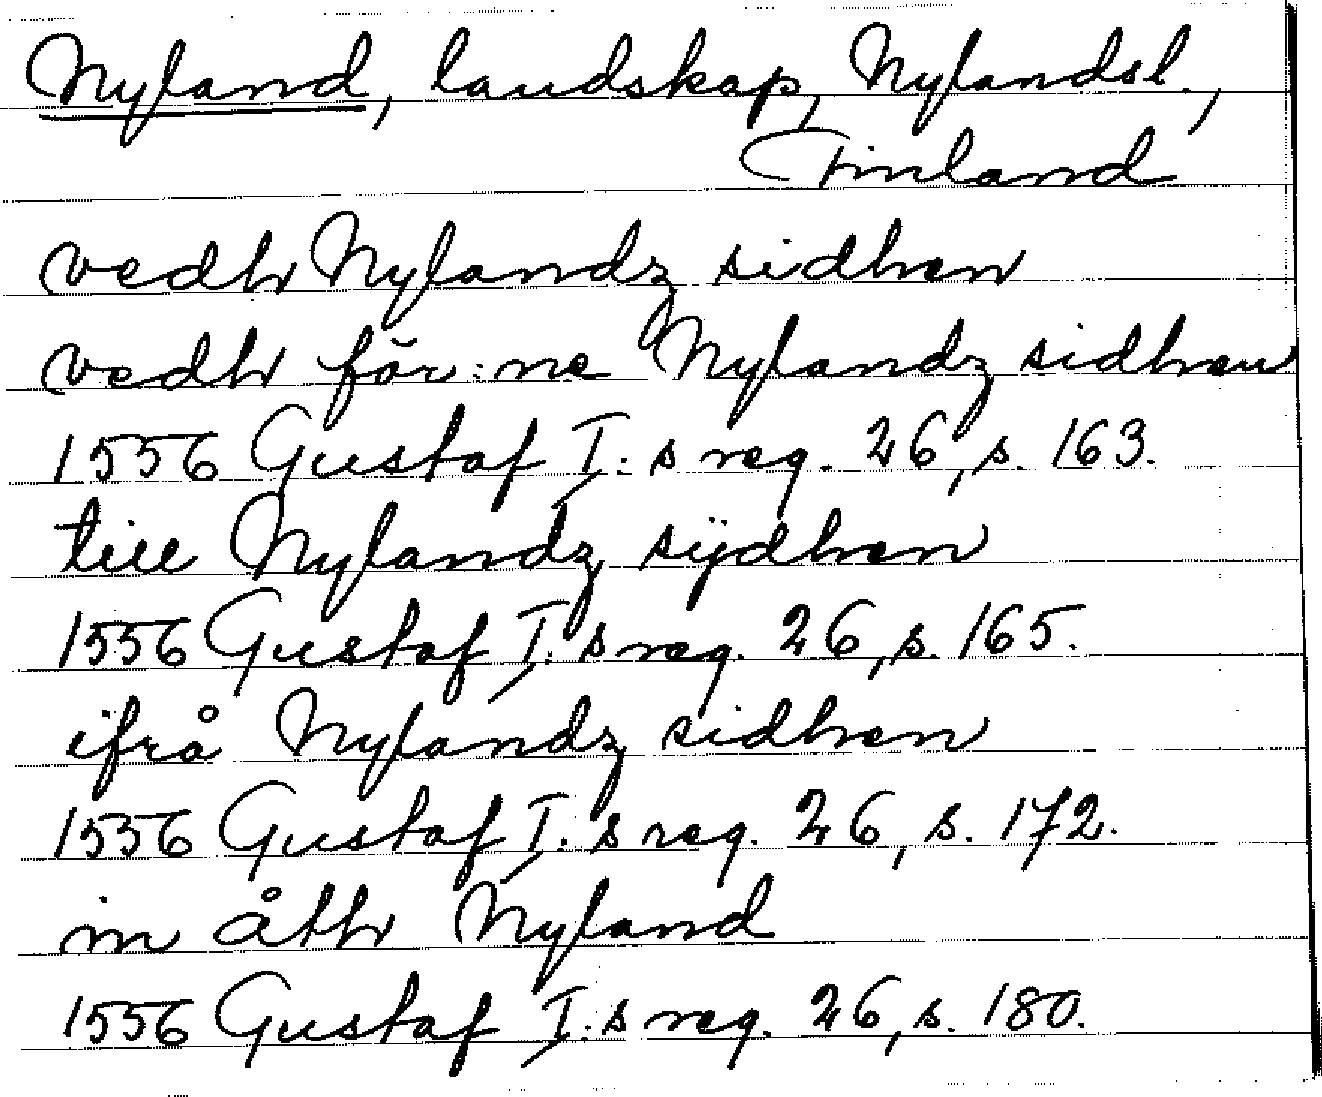 Nyland, landskap, Nylandsl.,
Finland
vedh Nylandz sidhen
vedh för:ne Nylandz sidhen
1556 Gustaf I:s reg. 26, s. 163.
till Nylandz sÿdhen
1556 Gustaf I:s reg. 26, s. 165.
ifrå Nylandz sidhen
1556 Gustaf I:s reg. 26, s. 172.
in åth Nyland
1556 Gustaf I:s reg. 26, s. 180.